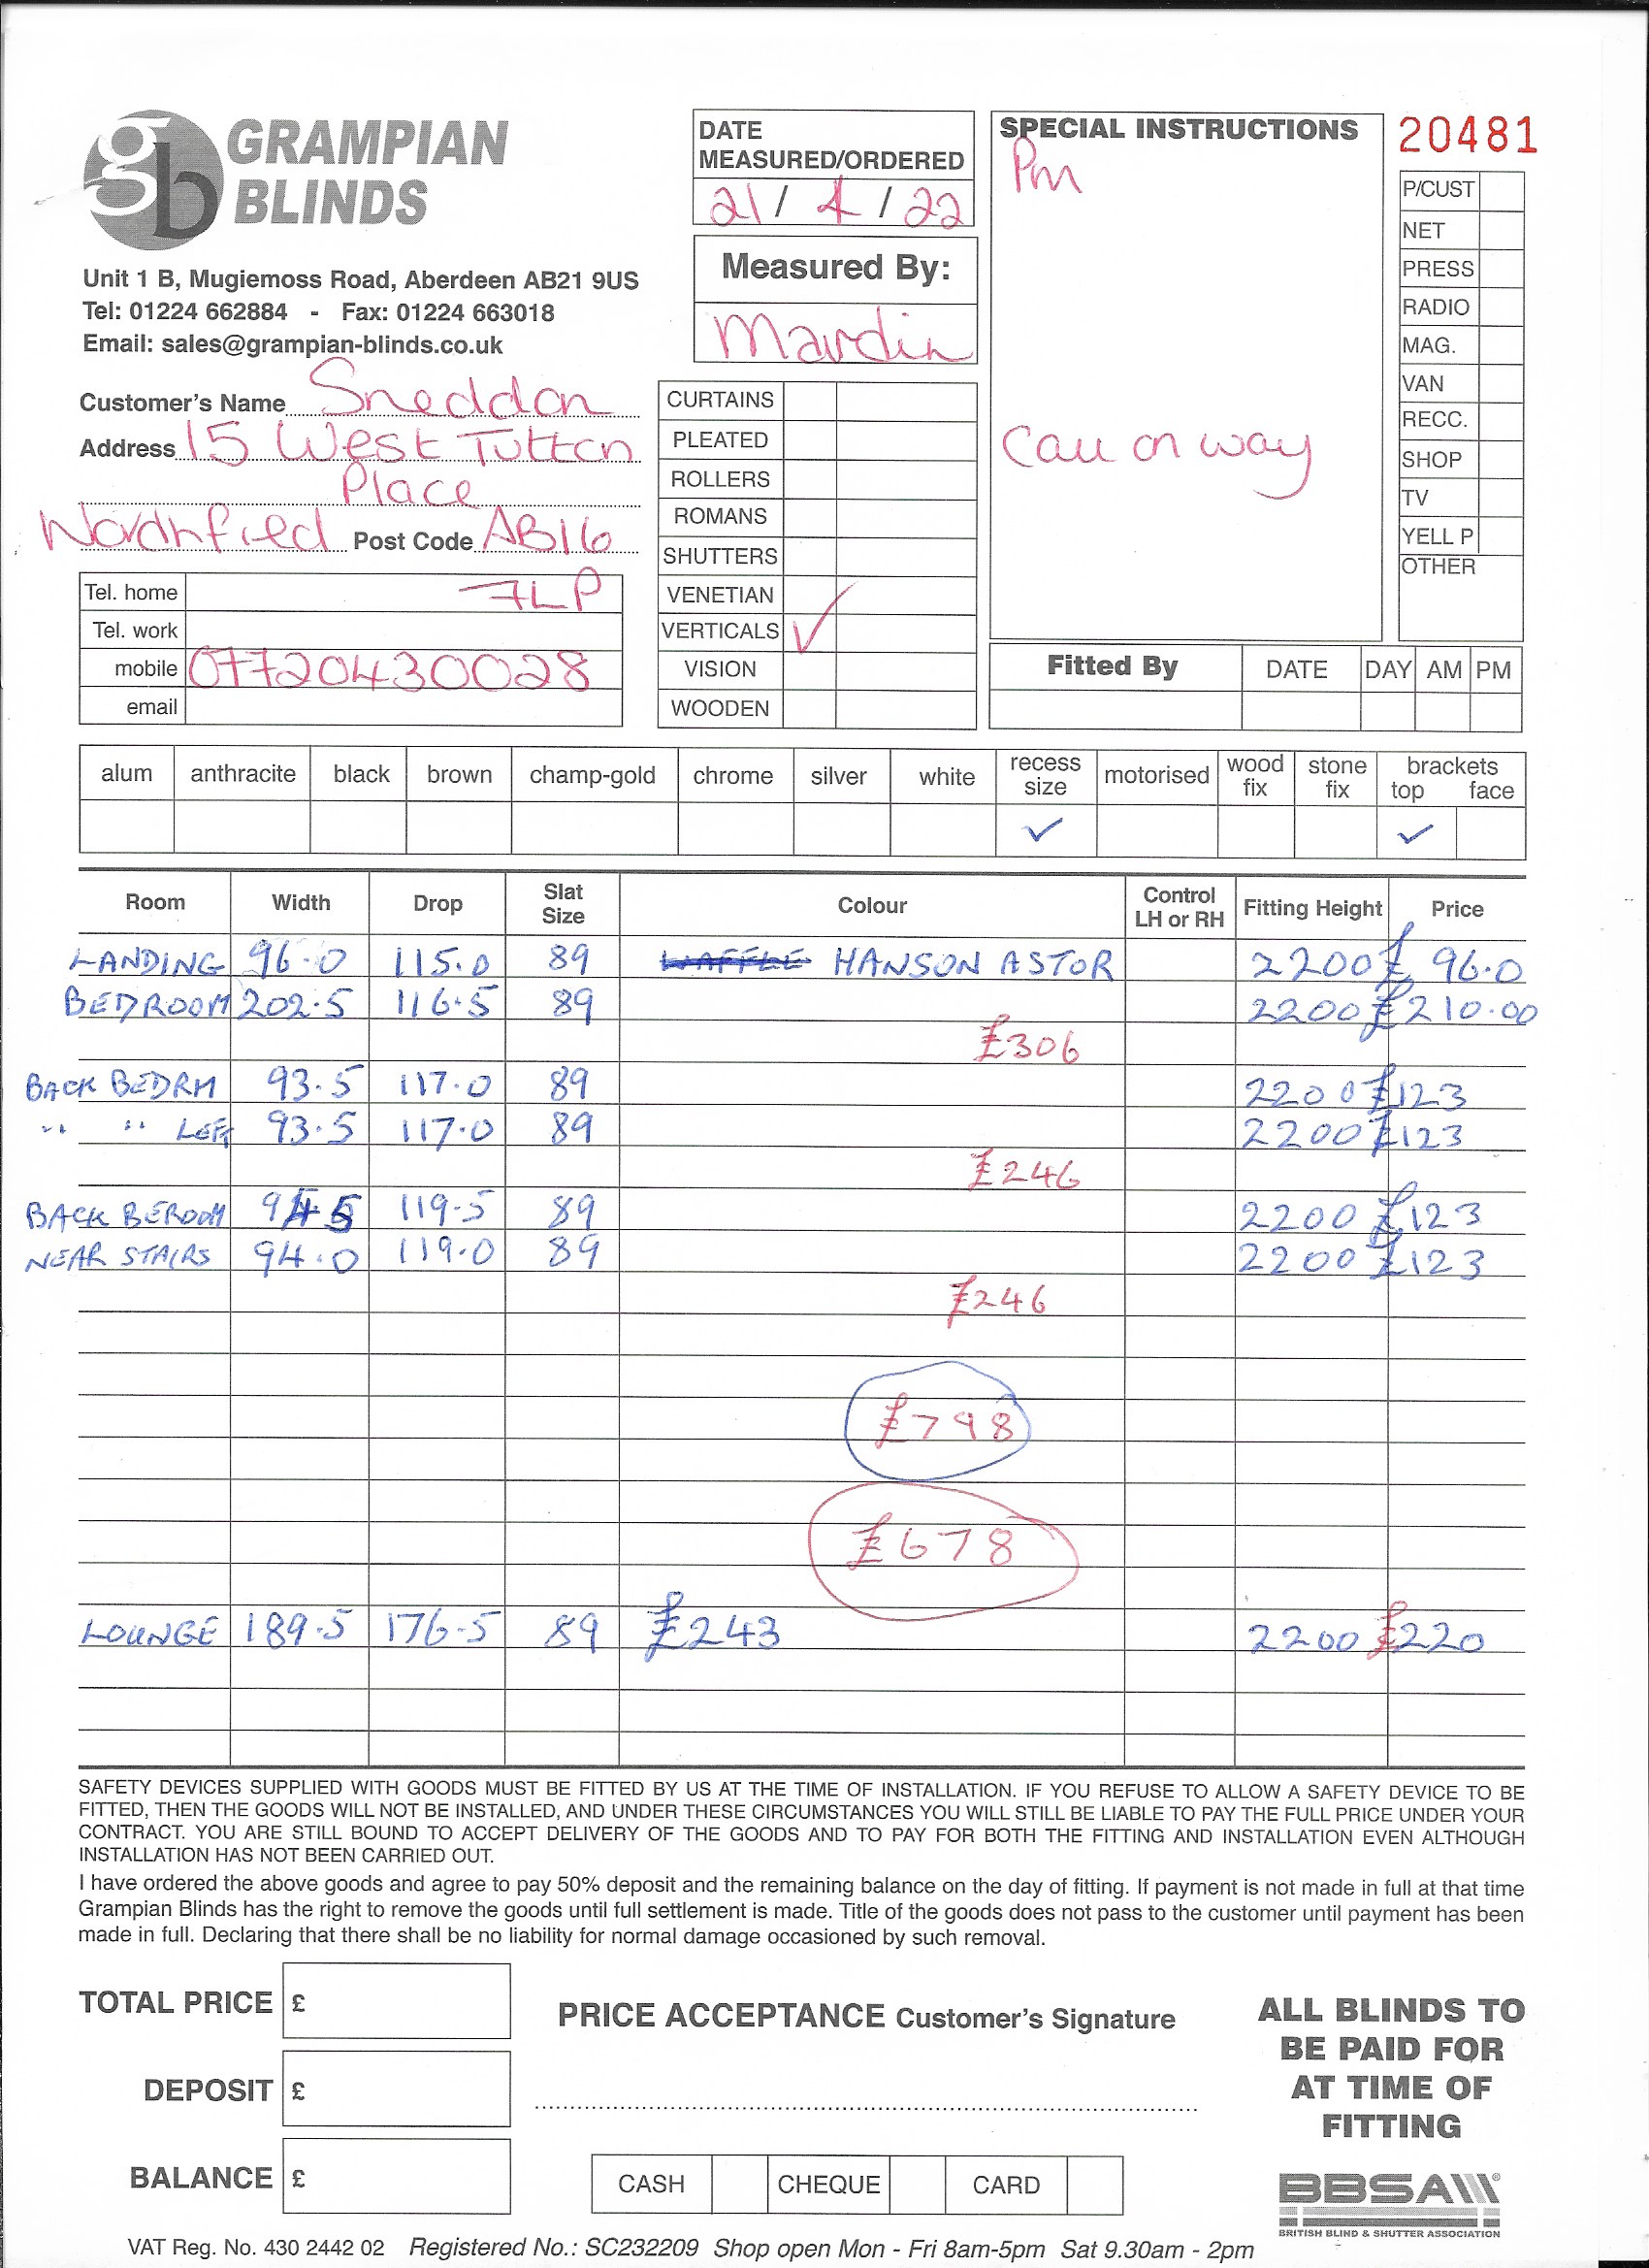 gb GRAMPIAN BLINDS
Unit 1 B, Mugiemoss Road, Aberdeen AB21 9US
Tel: 01224 662884 - Fax: 01224 663018
Email: sales@grampian-blinds.co.uk
Customer's Name Sneddon
Address 15 West Tutton
Place
Northfield Post Code AB16
Tel. home 7LP
Tel. work
mobile 07720430028
email
DATE
MEASURED/ORDERED
21 / 4 / 22
Measured By:
Mardin
CURTAINS
PLEATED
ROLLERS
ROMANS
SHUTTERS
VENETIAN
VERTICALS ✓
VISION
WOODEN
SPECIAL INSTRUCTIONS
Pm
Call on way
20481
P/CUST
NET
PRESS
RADIO
MAG.
VAN
RECC.
SHOP
TV
YELL P
OTHER
Fitted By DATE DAY AM PM
alum anthracite black brown champ-gold chrome silver white recess size motorised wood fix stone fix brackets top face
✓ ✓
Room Width Drop Slat Size Colour Control LH or RH Fitting Height Price
LANDING 96.0 115.0 89 WAFFLE HANSON ASTOR 2200 £ 96.0
BEDROOM 202.5 116.5 89 2200 £210.00
£306
BACK BEDRM 93.5 117.0 89 2200 £123
" " LEFT 93.5 117.0 89 2200 £123
£246
BACK BEROOM 94.5 119.5 89 2200 £123
NEAR STAIRS 94.0 119.0 89 2200 £123
£246
£798
£678
LOUNGE 189.5 176.5 89 £243 2200 £220
SAFETY DEVICES SUPPLIED WITH GOODS MUST BE FITTED BY US AT THE TIME OF INSTALLATION. IF YOU REFUSE TO ALLOW A SAFETY DEVICE TO BE
FITTED, THEN THE GOODS WILL NOT BE INSTALLED, AND UNDER THESE CIRCUMSTANCES YOU WILL STILL BE LIABLE TO PAY THE FULL PRICE UNDER YOUR
CONTRACT. YOU ARE STILL BOUND TO ACCEPT DELIVERY OF THE GOODS AND TO PAY FOR BOTH THE FITTING AND INSTALLATION EVEN ALTHOUGH
INSTALLATION HAS NOT BEEN CARRIED OUT.
I have ordered the above goods and agree to pay 50% deposit and the remaining balance on the day of fitting. If payment is not made in full at that time
Grampian Blinds has the right to remove the goods until full settlement is made. Title of the goods does not pass to the customer until payment has been
made in full. Declaring that there shall be no liability for normal damage occasioned by such removal.
TOTAL PRICE £
DEPOSIT £
BALANCE £
PRICE ACCEPTANCE Customer's Signature
CASH CHEQUE CARD
ALL BLINDS TO
BE PAID FOR
AT TIME OF
FITTING
BBSA
BRITISH BLIND & SHUTTER ASSOCIATION
VAT Reg. No. 430 2442 02 Registered No.: SC232209 Shop open Mon - Fri 8am-5pm Sat 9.30am - 2pm